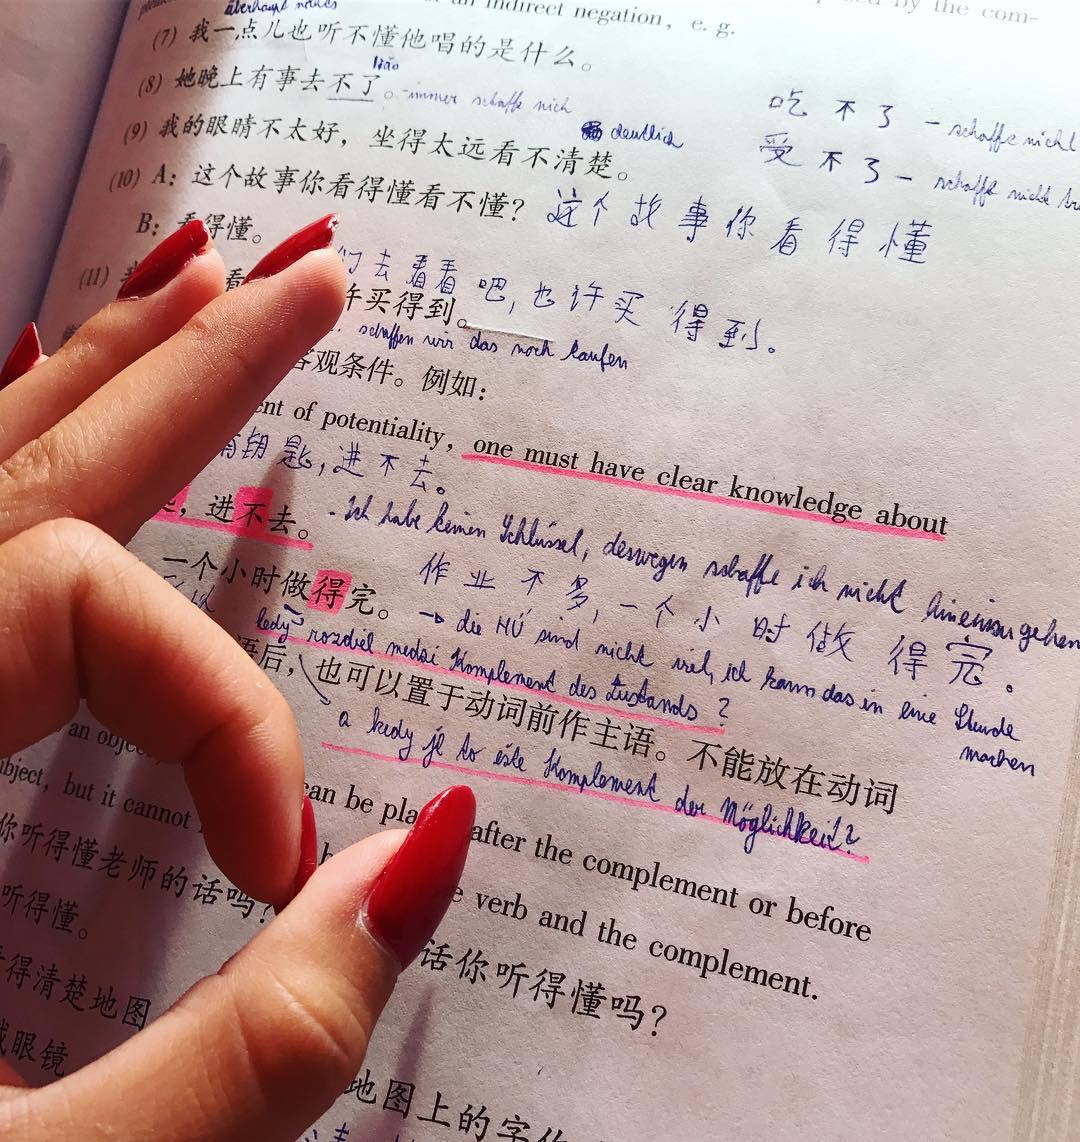 an indirect negation, e. g.
by the com-
überhaupt nichts
(7) 我一点儿也听不懂他唱的是什么。
liǎo
(8) 她晚上有事去不了。 -immer schaffe nich
吃不了 - schaffe nicht
deutlich
受不了 - schafft nicht
(9) 我的眼睛不太好，坐得太远看不清楚。
(10) A: 这个故事你看得懂看不懂? 这个故事你看得懂
B: 看得懂。
们去看看吧, 也许买得到。
(11) 我 看 许买得到。
schaffen wir das noch kaufen
客观条件。例如:
ent of potentiality, one must have clear knowledge about
钥匙, 进不去。
, 进不去。 - Ich habe keinen Schlüssel, deswegen schaffe ich nicht hineinzugehen
作业不多, 一个小时做得完。
一个小时做得完。 → die HÚ sind nicht viel, ich kann das in eine Stunde machen
kedy rozdiel medzi Komplement des Zustands?
语后, 也可以置于动词前作主语。不能放在动词
a kedy je to ešte Komplement der Möglichkeit?
an object
can be placed after the complement or before
bject, but it cannot
verb and the complement.
你听得懂老师的话吗?
话你听得懂吗?
听得懂。
得清楚地图
地图上的字你
眼镜